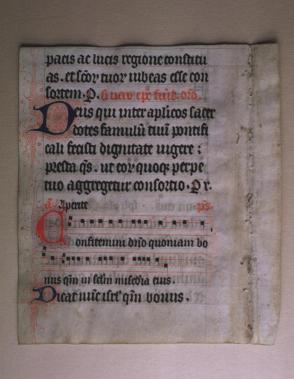 pacis ac lucis regione constitu
as. et scōr tuor iubeas esse con
sortem. P.
Deus qui inter aplicos sacer
dotes famulū tuū pontifi
cali fecisti dignitate uigere :
presta qs. ut eor quoq perpe
tuo aggregetur consortio. P r.
Aperite
Confitemini dño quoniam bo
nus qm in sclm misedia eius.
Dicat nūc isrl qm bonus.